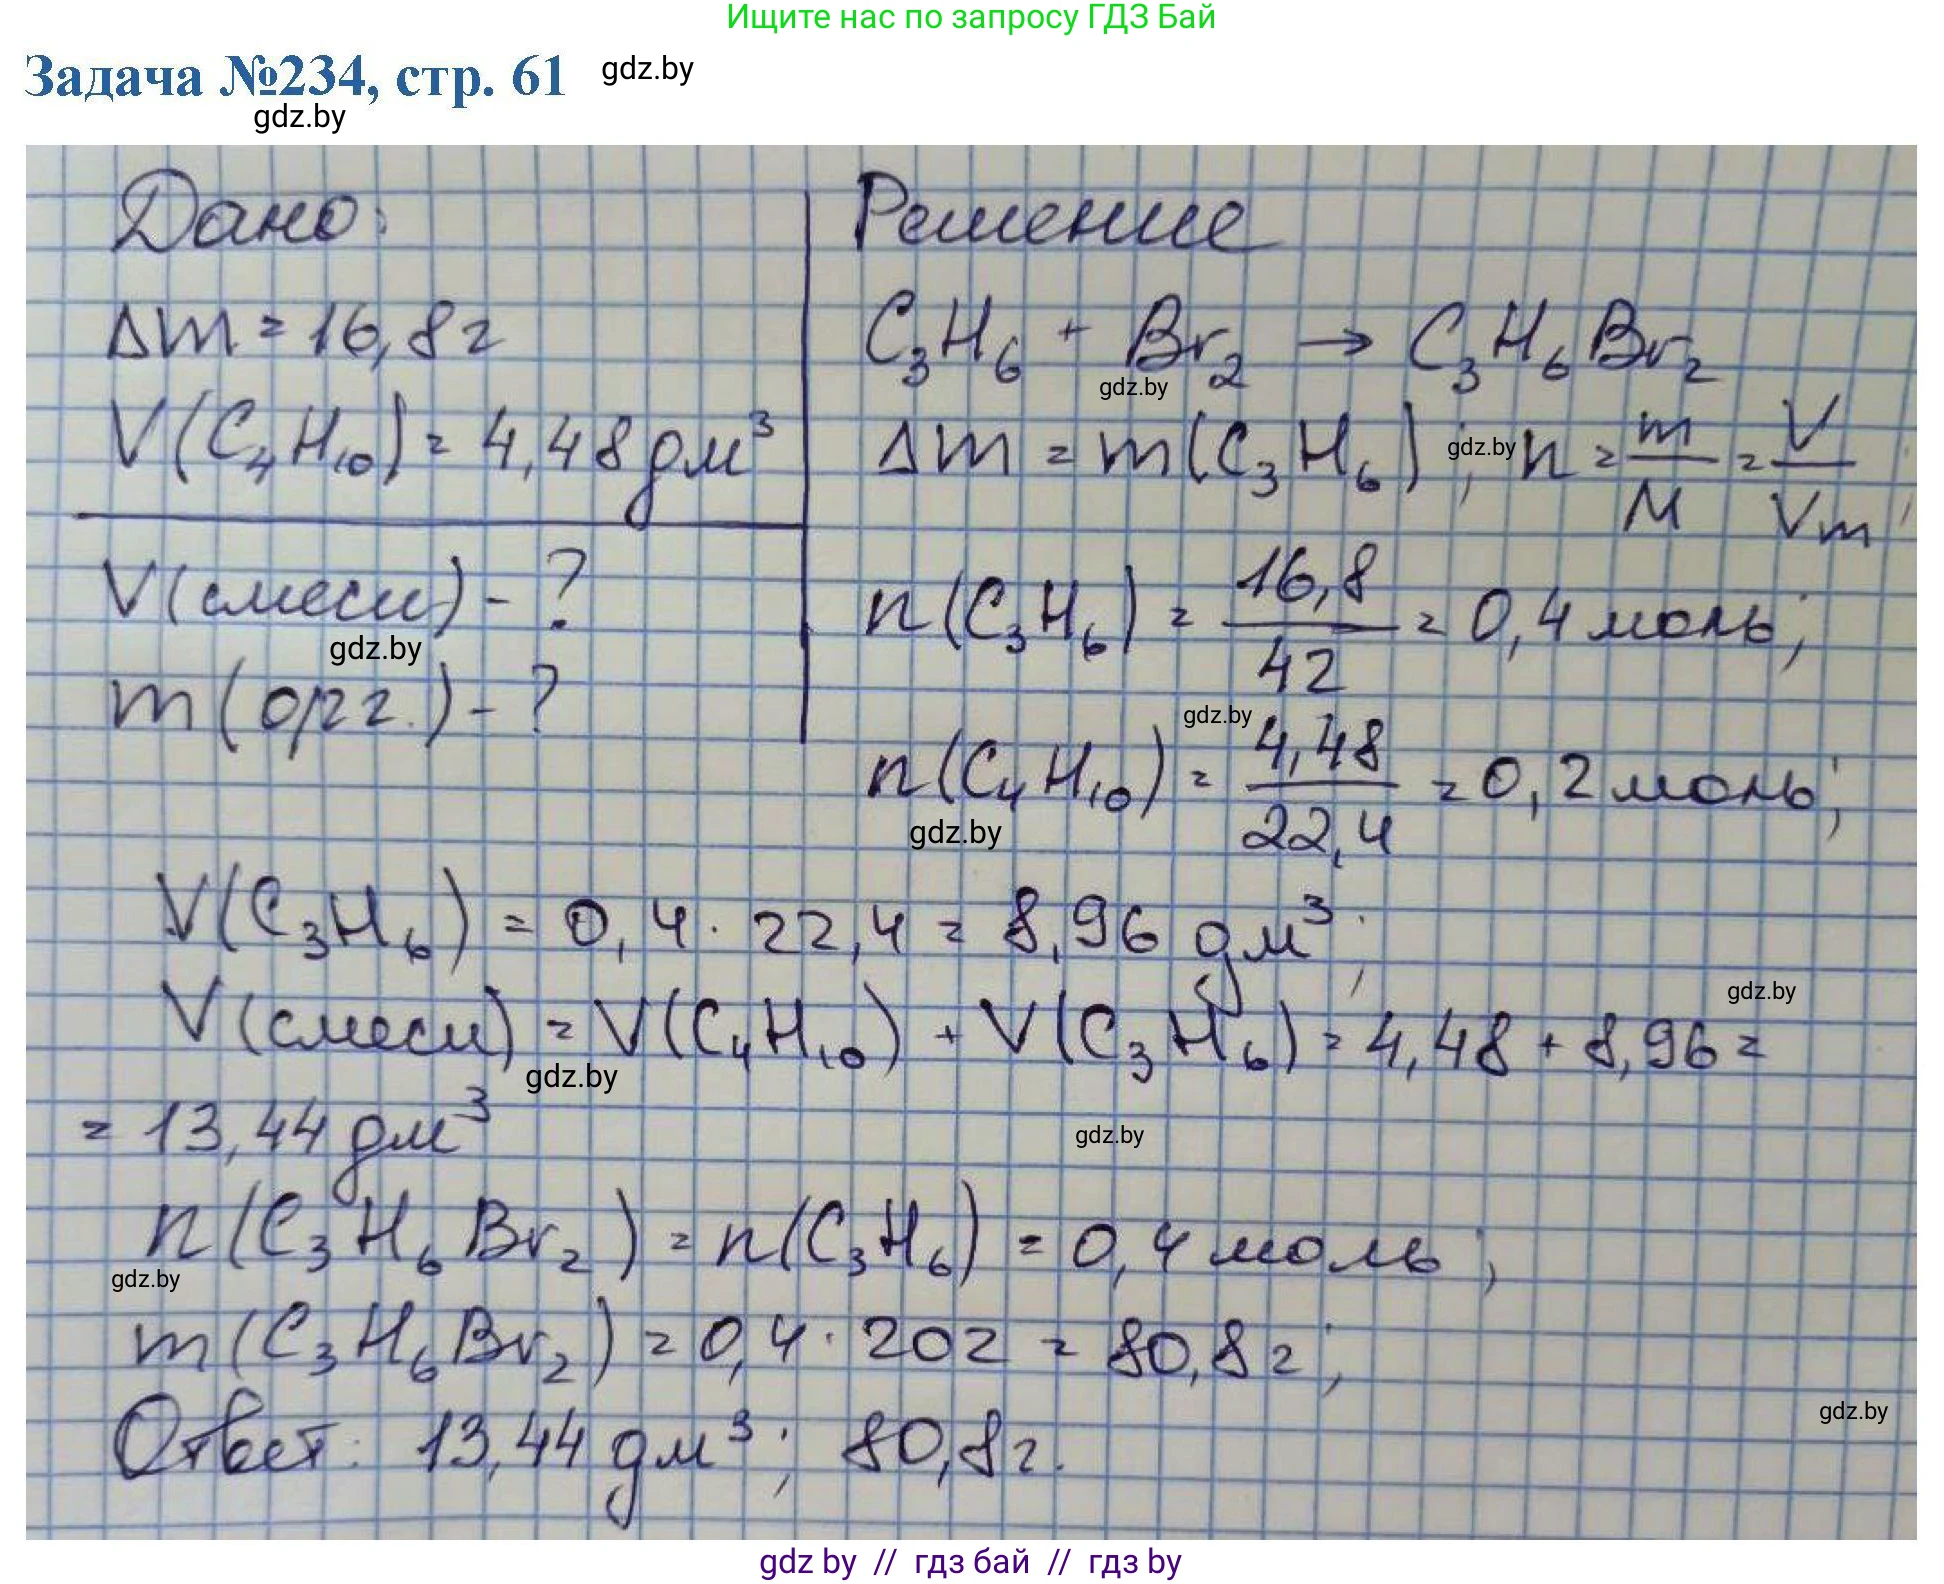 Ищите нас по запросу ГДЗ Бай
Задача №234, стр. 61 gdz.by
gdz.by
Дано:
Δm = 16,8 г
V(C₄H₁₀) = 4,48 дм³
V(смеси) - ?
gdz.by
m(орг.) - ?
Решение
C₃H₆ + Br₂ → C₃H₆Br₂
gdz.by
Δm = m(C₃H₆); gdz.by n = m/M = V/Vm;
n(C₃H₆) = 16,8/42 = 0,4 моль;
gdz.by
n(C₄H₁₀) = 4,48/22,4 = 0,2 моль;
gdz.by
V(C₃H₆) = 0,4 · 22,4 = 8,96 дм³;
gdz.by
V(смеси) = V(C₄H₁₀) + V(C₃H₆) = 4,48 + 8,96 =
gdz.by
= 13,44 дм³
gdz.by
n(C₃H₆Br₂) = n(C₃H₆) = 0,4 моль;
gdz.by
m(C₃H₆Br₂) = 0,4 · 202 = 80,8 г;
gdz.by
Ответ: 13,44 дм³; 80,8 г.
gdz by // гдз бай // гдз by